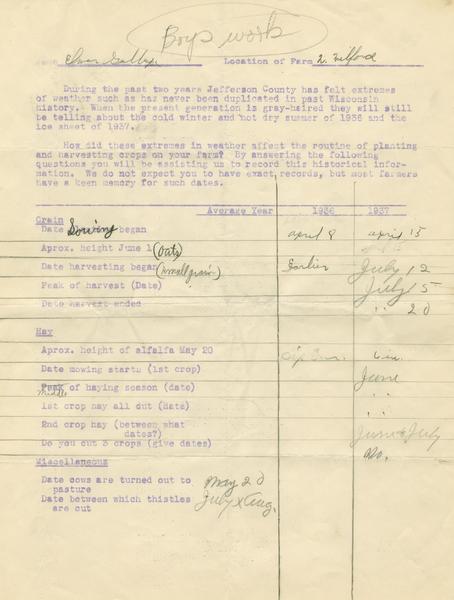 Boys work
Location of Farm 2. Milford
During the past two years Jefferson County has felt extremes
of weather such as has never been duplicated in past Wisconsin
history. When the present generation is gray-haired they will still
be telling about the cold winter and hot dry summer of 1936 and the
ice sheet of 1937.
How did these extremes in weather affect the routine of planting
and harvesting crops on your farm? By answering the following
questions you will be assisting us to record this historical infor-
mation. We do not expect you to have exact records, but most farmers
have a keen memory for such dates.
Average Year 1936 1937
Grain
Date Sowing began april 8 april 15
Aprox. height June 1 (Oats)
Date harvesting began (small grain) Earlier July 12
Peak of harvest (Date) July 15
Date harvest ended " 20
Hay
Aprox. height of alfalfa May 20 6 in.
Date mowing starts (1st crop) June
Peak of haying season (date) " "
Middle
1st crop hay all cut (date) " "
2nd crop hay (between what
dates?) June & July
Do you cut 3 crops (give dates) no.
Miscellaneous
Date cows are turned out to May 20
pasture
Date between which thistles July & Aug.
are cut